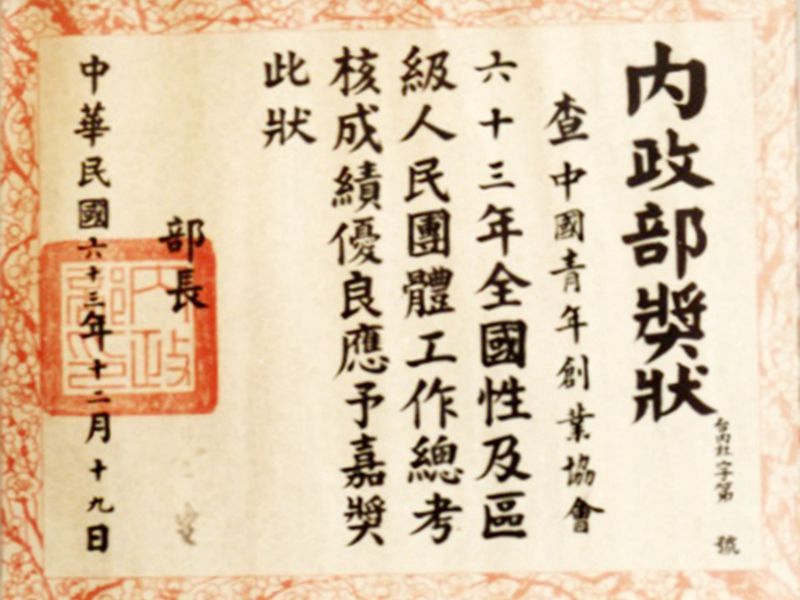 內政部獎狀
台內社字第 號
查中國青年創業協會
六十三年全國性及區
級人民團體工作總考
核成績優良應予嘉獎
此狀
部長
中華民國六十三年十二月十九日
內政部印